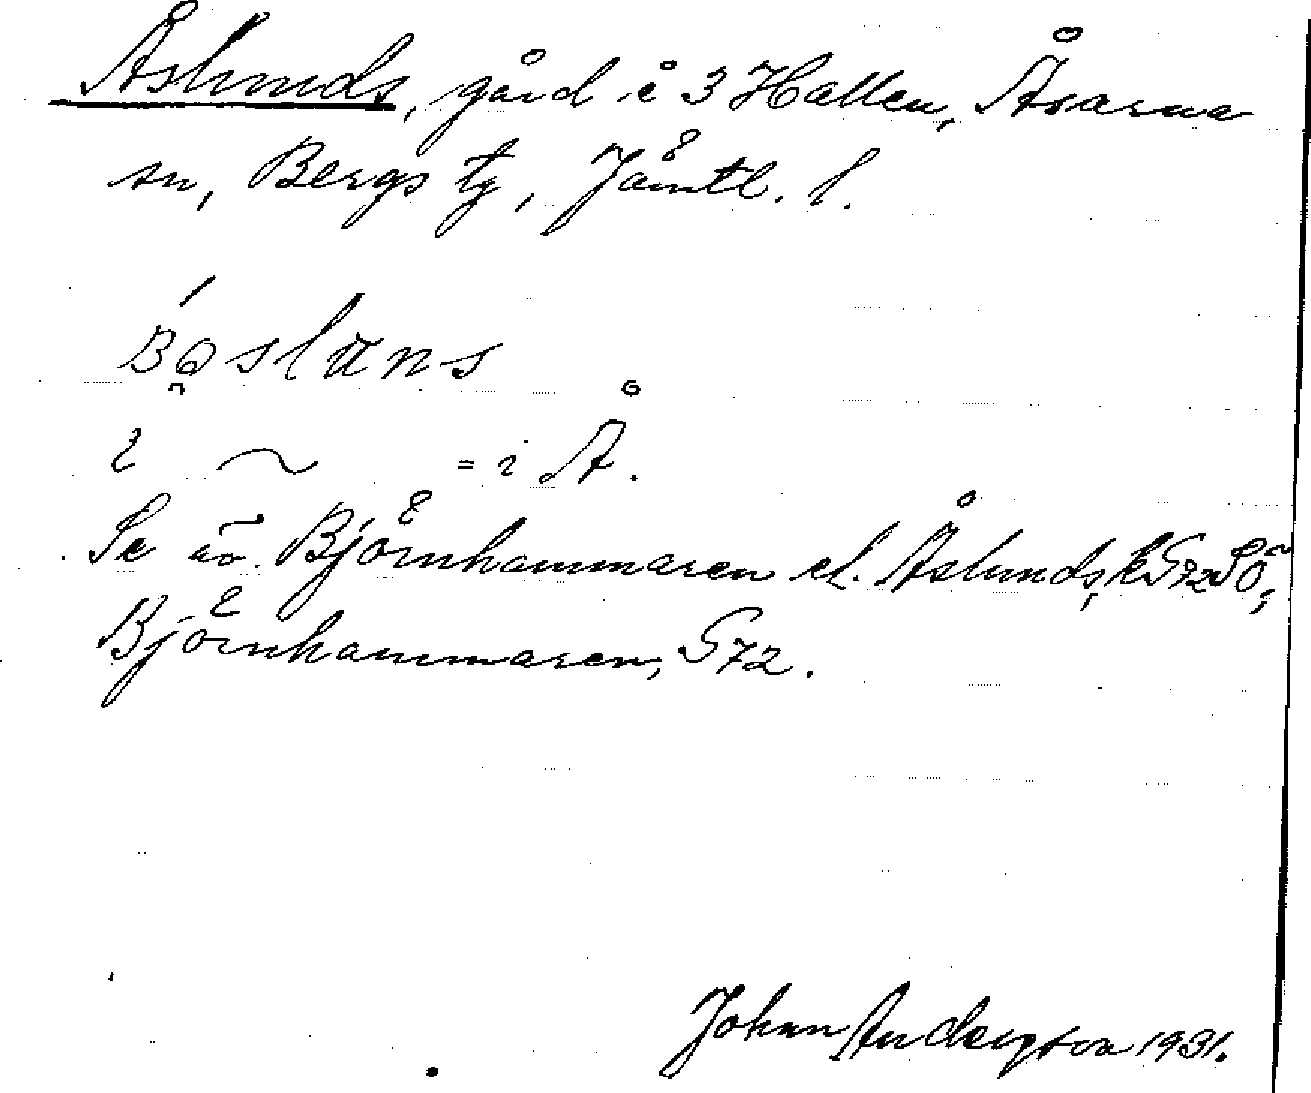 Åslunds, gård i 3 Hallen, Åsarna
sn, Bergs tg, Jämtl. l.
i ~ = i Å.
Se äv. Björnhammaren el. Åslunds, k S72SÖ,
Björnhammaren, S72.
Johan Andersson 1931.